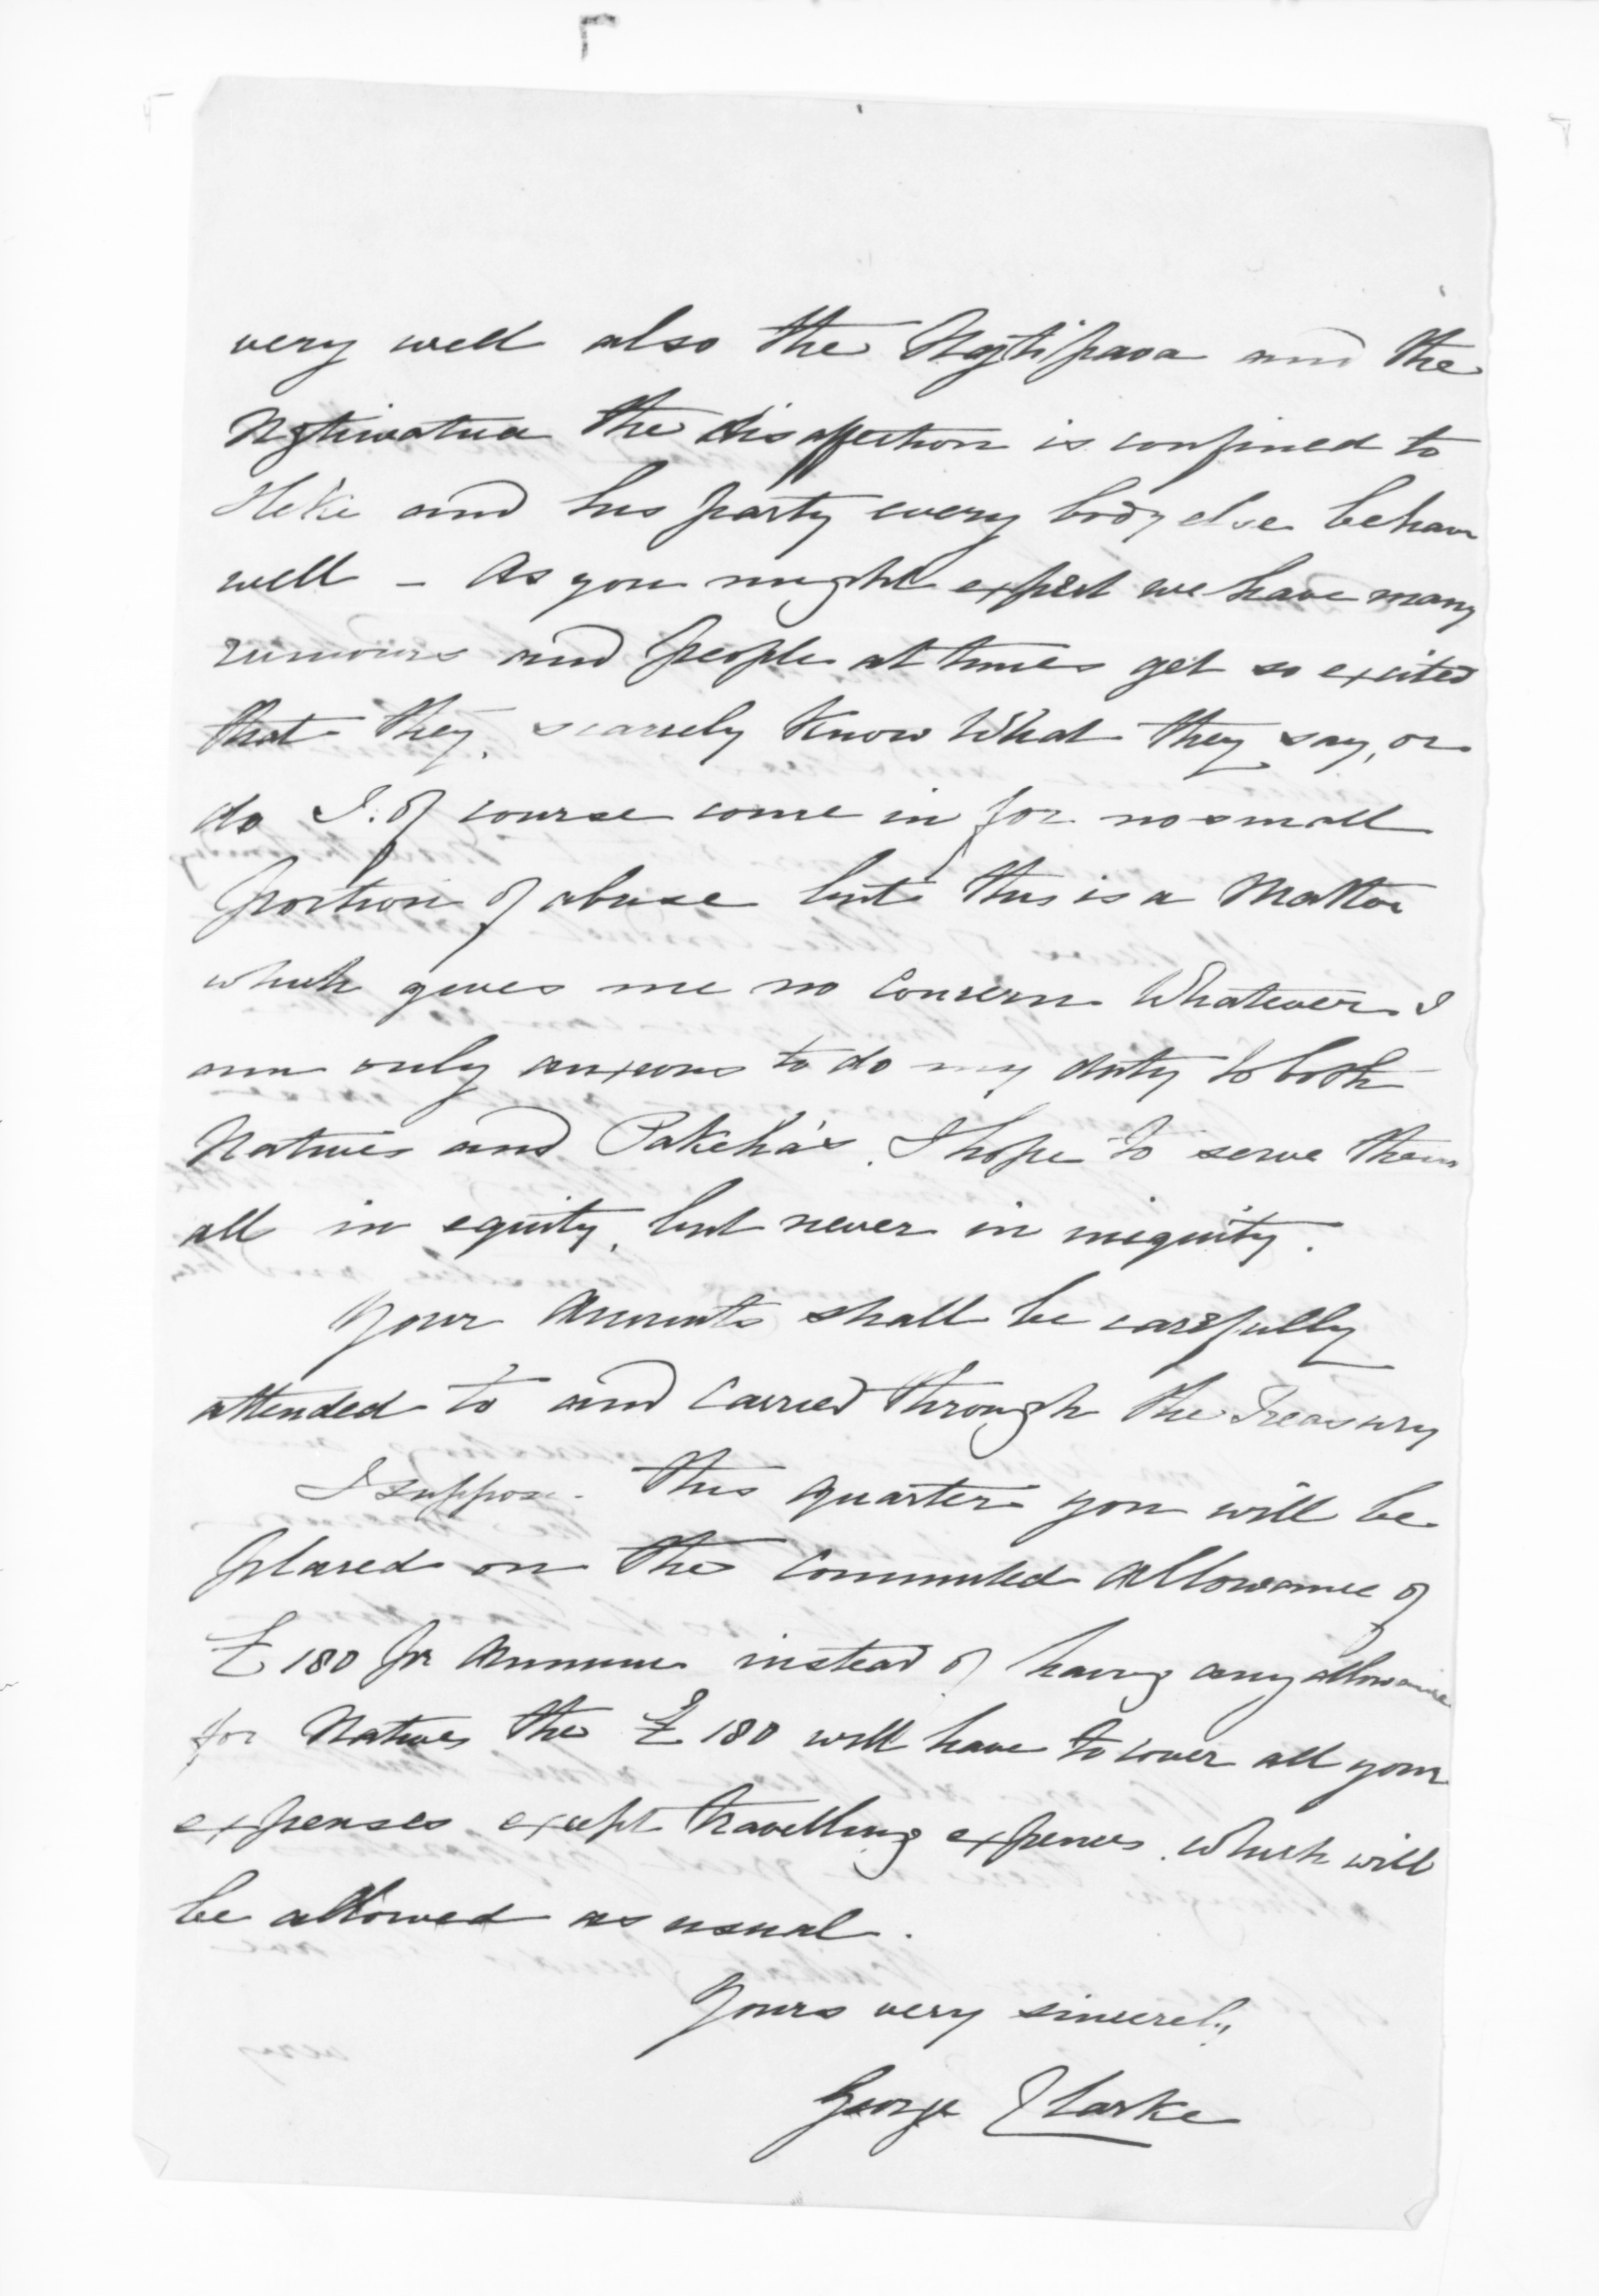 very well also the Ngtipaoa and the
Ngtiwatua the disaffection is confined to
Heke and his party every body else behave
well - As you might expect we have many
rumours and people at times get so excited
that they scarcely know what they say, or
do I of course come in for no small
portion of abuse but this is a matter
which gives me no concern whatever I
am only anxious to do my duty to both
Natives and Pakeha's. I hope to serve them
all in equity, but never in iniquity.
Your accounts shall be carefully
attended to and carried through the Treasury
I suppose this quarter you will be
placed on the commuted allowance of
£180 pr annum instead of having any allowance
for Natives the £180 will have to cover all your
expenses except travelling expenses which will
be allowed as usual.
Yours very sincerely
George Clarke